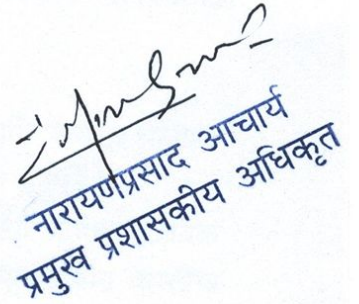 नारायणप्रसाद आचार्य
प्रमुख प्रशासकीय अधिकृत